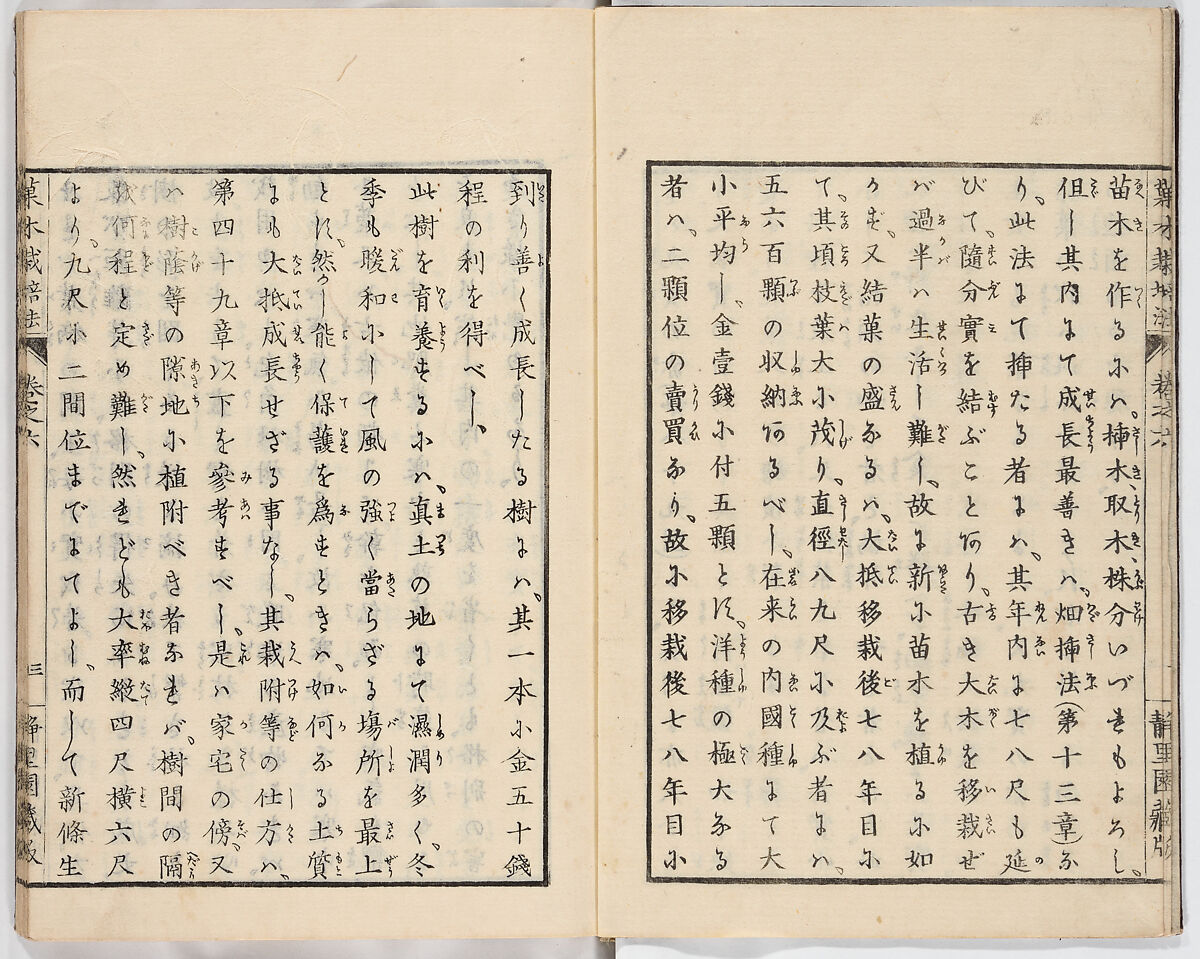 菓木栽培法 卷之六 靜里園藏版
苗木を作るにハ、挿木取木株分いづれもよろし、
但し其内にて成長最善きハ、畑挿法(第十三章)な
り、此法にて挿たる者にハ、其年内に七八尺も延
びて、隨分實を結ぶことあり、古き大木を移栽せ
バ過半ハ生活し難し、故に新に苗木を植るに如
かず、又結菓の盛なるハ、大抵移栽後七八年目に
て、其頃枝葉大に茂り、直徑八九尺に及ぶ者にハ、
五六百顆の収納あるべし、在来の内國種にて大
小平均し、金壹錢に付五顆とす、洋種の極大なる
者ハ、二顆位の賣買なり、故に移栽後七八年目に
到り善く成長したる樹にハ、其一本に金五十錢
程の利を得べし、
此樹を育養するにハ、真土の地にて濕潤多く、冬
季も暖和にして風の強く當らざる塲所を最上
とす、然し能く保護を爲すときハ、如何なる土質
にも大抵成長せざる事なし、其栽附等の仕方ハ、
第四十九章以下を參考すべし、是ハ家宅の傍又
ハ樹蔭等の隙地に植附べき者なれバ、樹間の隔
ハ何程と定め難し、然れども大率縱四尺横六尺
より、九尺に二間位までにてよし、而して新條生
菓木栽培法 卷之六 三 靜里園藏版